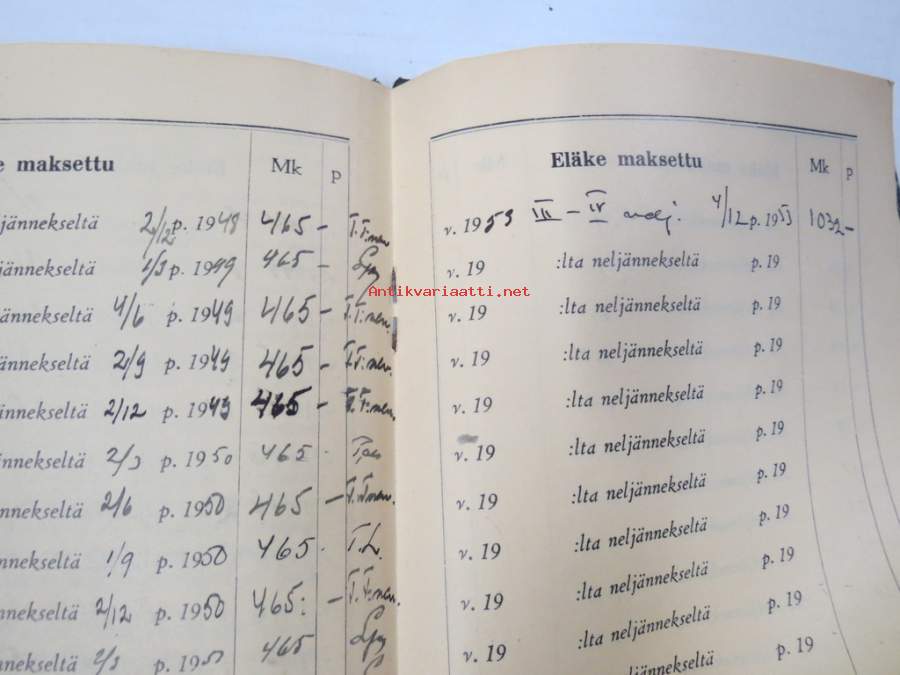 e maksettu Mk p
jännekseltä 2/12 p. 1948 465 – T.T:nen
jännekseltä 1/3 p. 1949 465 –
ännekseltä 4/6 p. 1949 465 – T.T:nen.
ännekseltä 2/9 p. 1949 465 – T.T:nen.
ännekseltä 2/12 p. 1949 465 – T.T:nen.
ännekseltä 2/3 p. 1950 465 ·
nnekseltä 2/6 p. 1950 465 – T.T:nen.
nnekseltä 1/9 p. 1950 465 · T.L.
nnekseltä 2/12 p. 1950 465: – T.T:nen.
nnekseltä 2/3 p. 195 465
Antikvariaatti.net
Eläke maksettu Mk p
v. 1953 III – IV nelj. 4/12 p. 1953 1032 –
v. 19 :lta neljännekseltä p. 19
v. 19 :lta neljännekseltä p. 19
v. 19 :lta neljännekseltä p. 19
v. 19 :lta neljännekseltä p. 19
v. 19 :lta neljännekseltä p. 19
v. 19 :lta neljännekseltä p. 19
v. 19 :lta neljännekseltä p. 19
v. 19 :lta neljännekseltä p. 19
v. 19 :lta neljännekseltä p. 19
:lta neljännekseltä p. 19